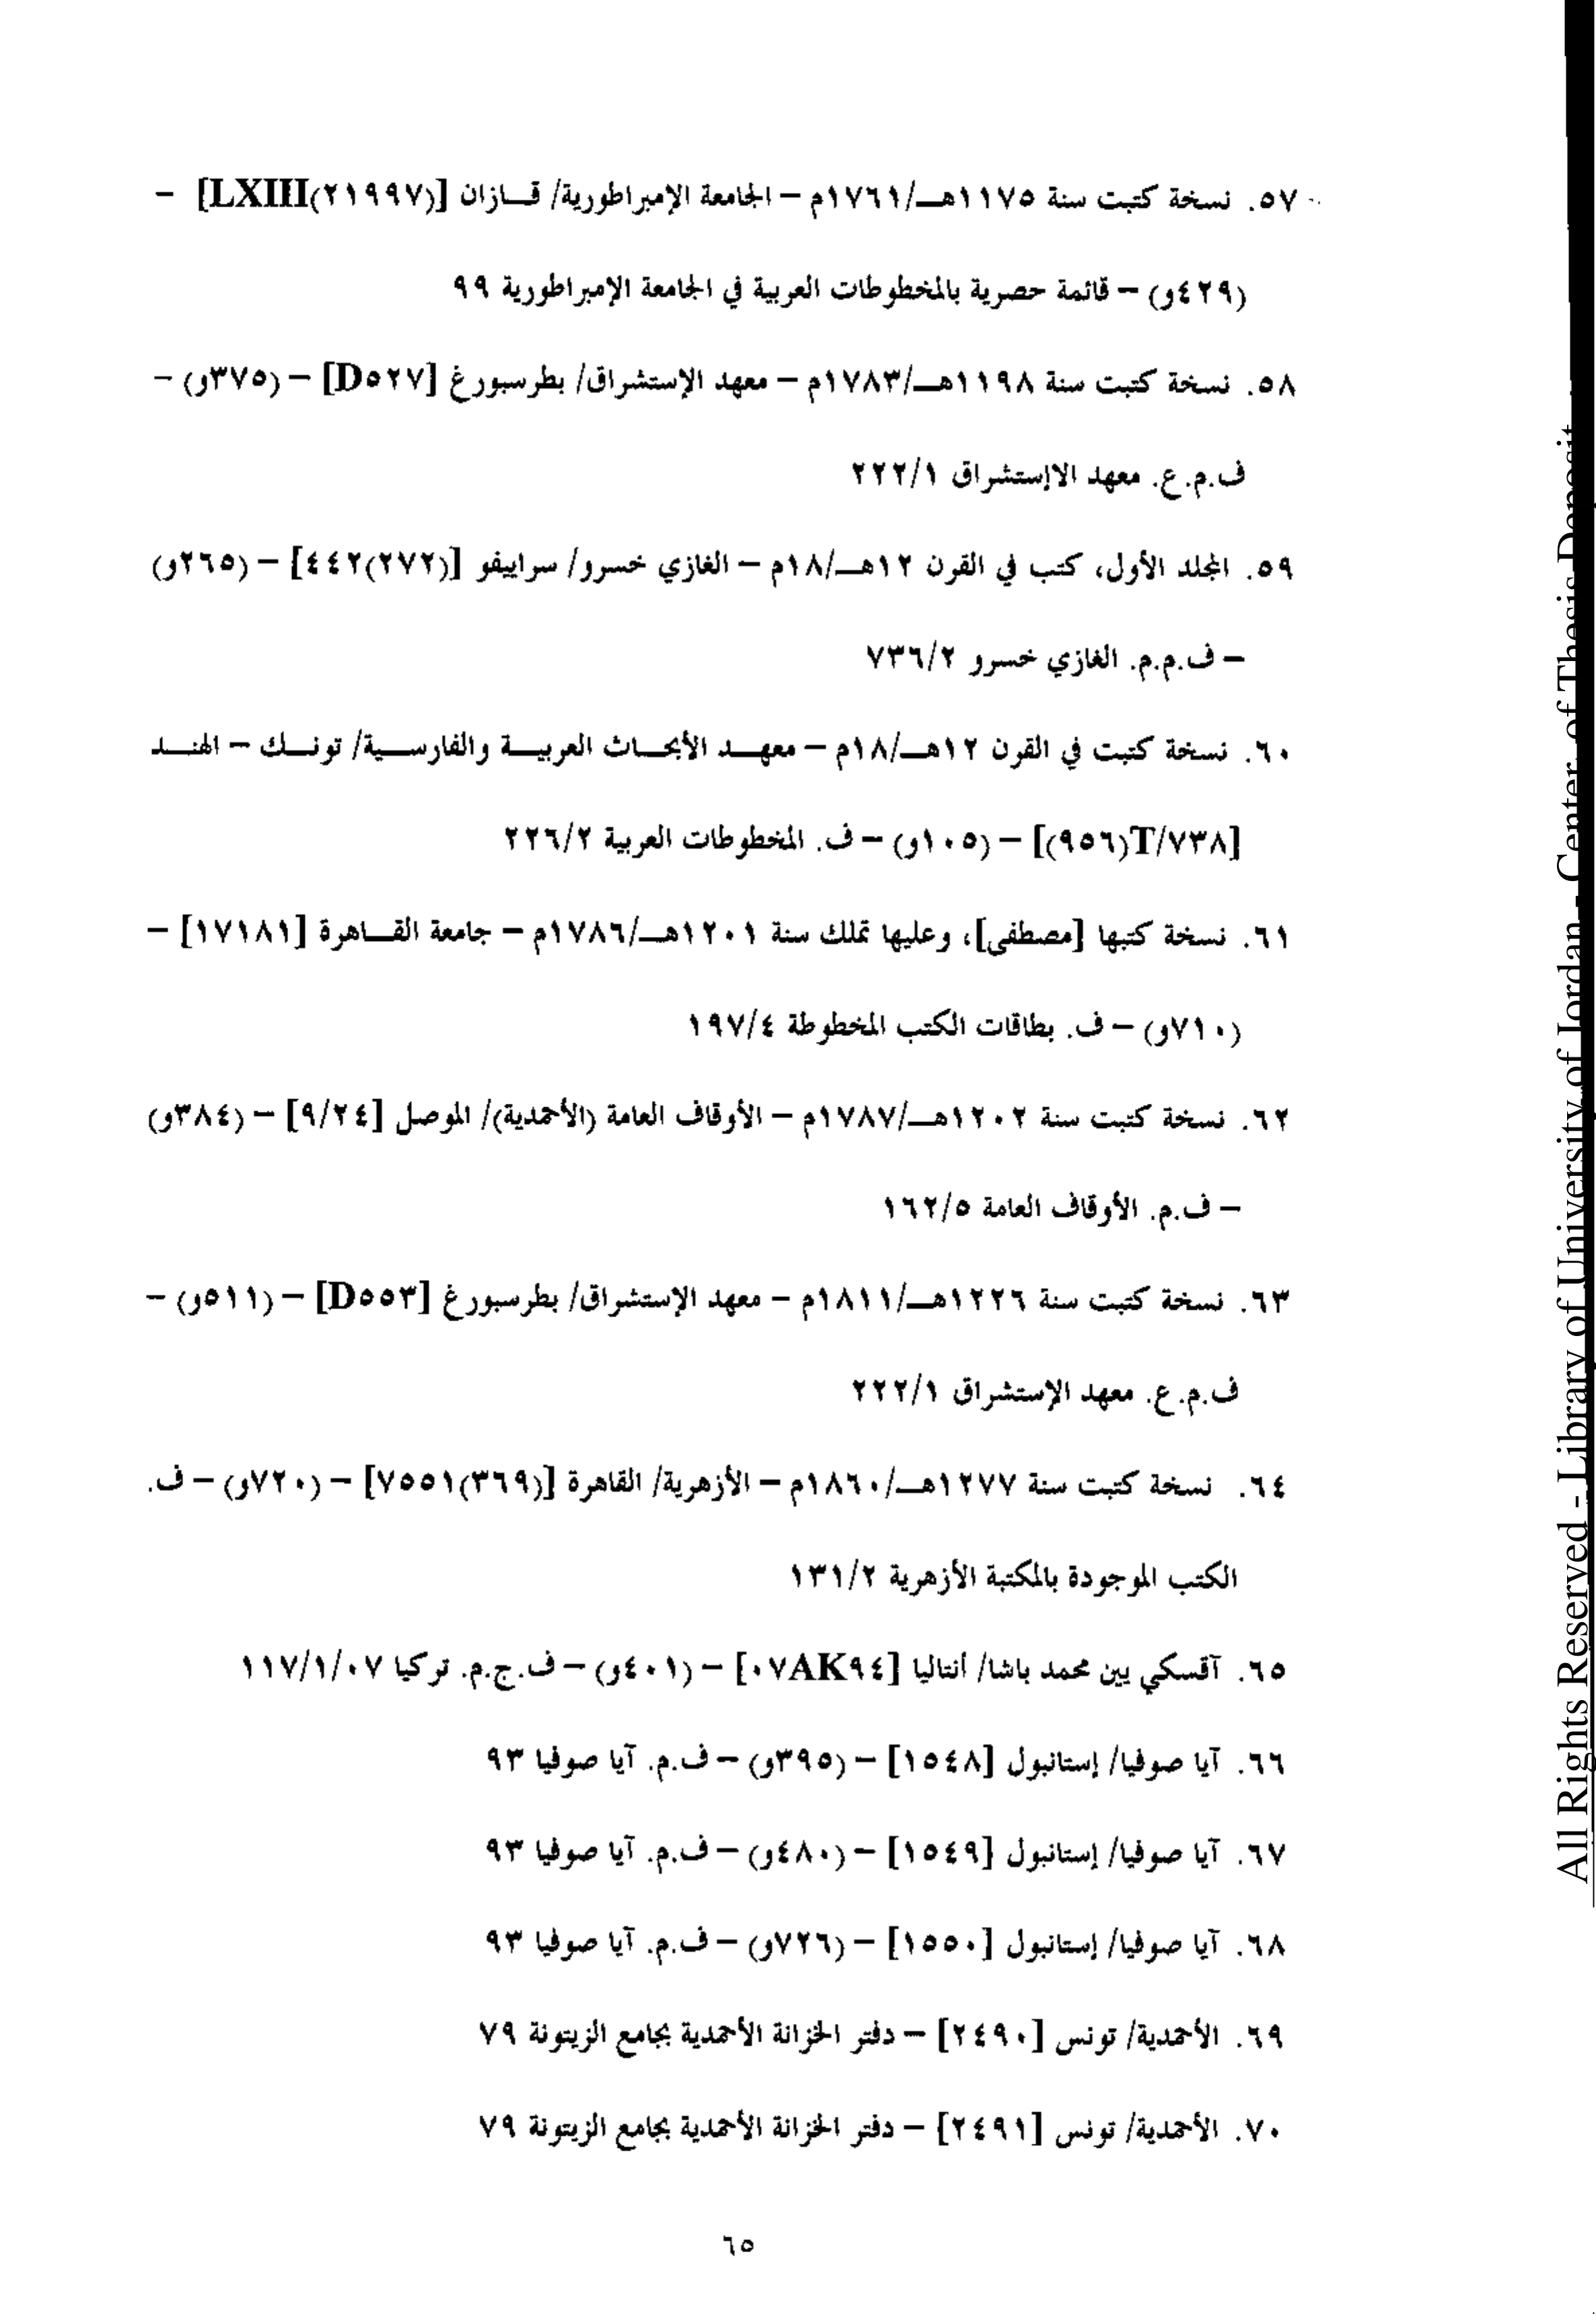 ٥٧. نسخة كتبت سنة ١١٧٥هـ/١٧٦١م – الجامعة الإمبراطورية/ قازان [LXIII(٢١٩٩٧)] –
(٤٢٩و) – قائمة حصرية بالمخطوطات العربية في الجامعة الإمبراطورية ٩٩
٥٨. نسخة كتبت سنة ١١٩٨هـ/١٧٨٣م – معهد الإستشراق/ بطرسبورغ [D٥٢٧] – (٣٧٥و) –
ف.م.ع. معهد الاإستشراق ٢٢٢/١
٥٩. المجلد الأول، كتب في القرن ١٢هـ/١٨م – الغازي خسرو/ سراييفو [(٢٧٢)٤٤٢] – (٢٦٥و)
– ف.م.م. الغازي خسرو ٧٣٦/٢
٦٠. نسخة كتبت في القرن ١٢هـ/١٨م – معهد الأبحاث العربية والفارسية/ تونك – الهند
[٧٣٨/T(٩٥٦)] – (١٠٥و) – ف. المخطوطات العربية ٢٢٦/٢
٦١. نسخة كتبها [مصطفى]، وعليها تملك سنة ١٢٠١هـ/١٧٨٦م – جامعة القاهرة [١٧١٨١] –
(٧١٠و) – ف. بطاقات الكتب المخطوطة ١٩٧/٤
٦٢. نسخة كتبت سنة ١٢٠٢هـ/١٧٨٧م – الأوقاف العامة (الأحمدية)/ الموصل [٩/٢٤] – (٣٨٤و)
– ف.م. الأوقاف العامة ١٦٢/٥
٦٣. نسخة كتبت سنة ١٢٢٦هـ/١٨١١م – معهد الإستشراق/ بطرسبورغ [D٥٥٣] – (٥١١و) –
ف.م.ع. معهد الإستشراق ٢٢٢/١
٦٤. نسخة كتبت سنة ١٢٧٧هـ/١٨٦٠م – الأزهرية/ القاهرة [(٣٦٩)٧٥٥١] – (٧٢٠و) – ف.
الكتب الموجودة بالمكتبة الأزهرية ١٣١/٢
٦٥. آقسكي يين محمد باشا/ أنتاليا [٠٧AK٩٤] – (٤٠١و) – ف.ج.م. تركيا ١١٧/١/٠٧
٦٦. آيا صوفيا/ إستانبول [١٥٤٨] – (٣٩٥و) – ف.م. آيا صوفيا ٩٣
٦٧. آيا صوفيا/ إستانبول [١٥٤٩] – (٤٨٠و) – ف.م. آيا صوفيا ٩٣
٦٨. آيا صوفيا/ إستانبول [١٥٥٠] – (٧٢٦و) – ف.م. آيا صوفيا ٩٣
٦٩. الأحمدية/ تونس [٢٤٩٠] – دفتر الخزانة الأحمدية بجامع الزيتونة ٧٩
٧٠. الأحمدية/ تونس [٢٤٩١] – دفتر الخزانة الأحمدية بجامع الزيتونة ٧٩
٦٥
All Rights Reserved - Library of University of Jordan - Center of Thesis Deposit